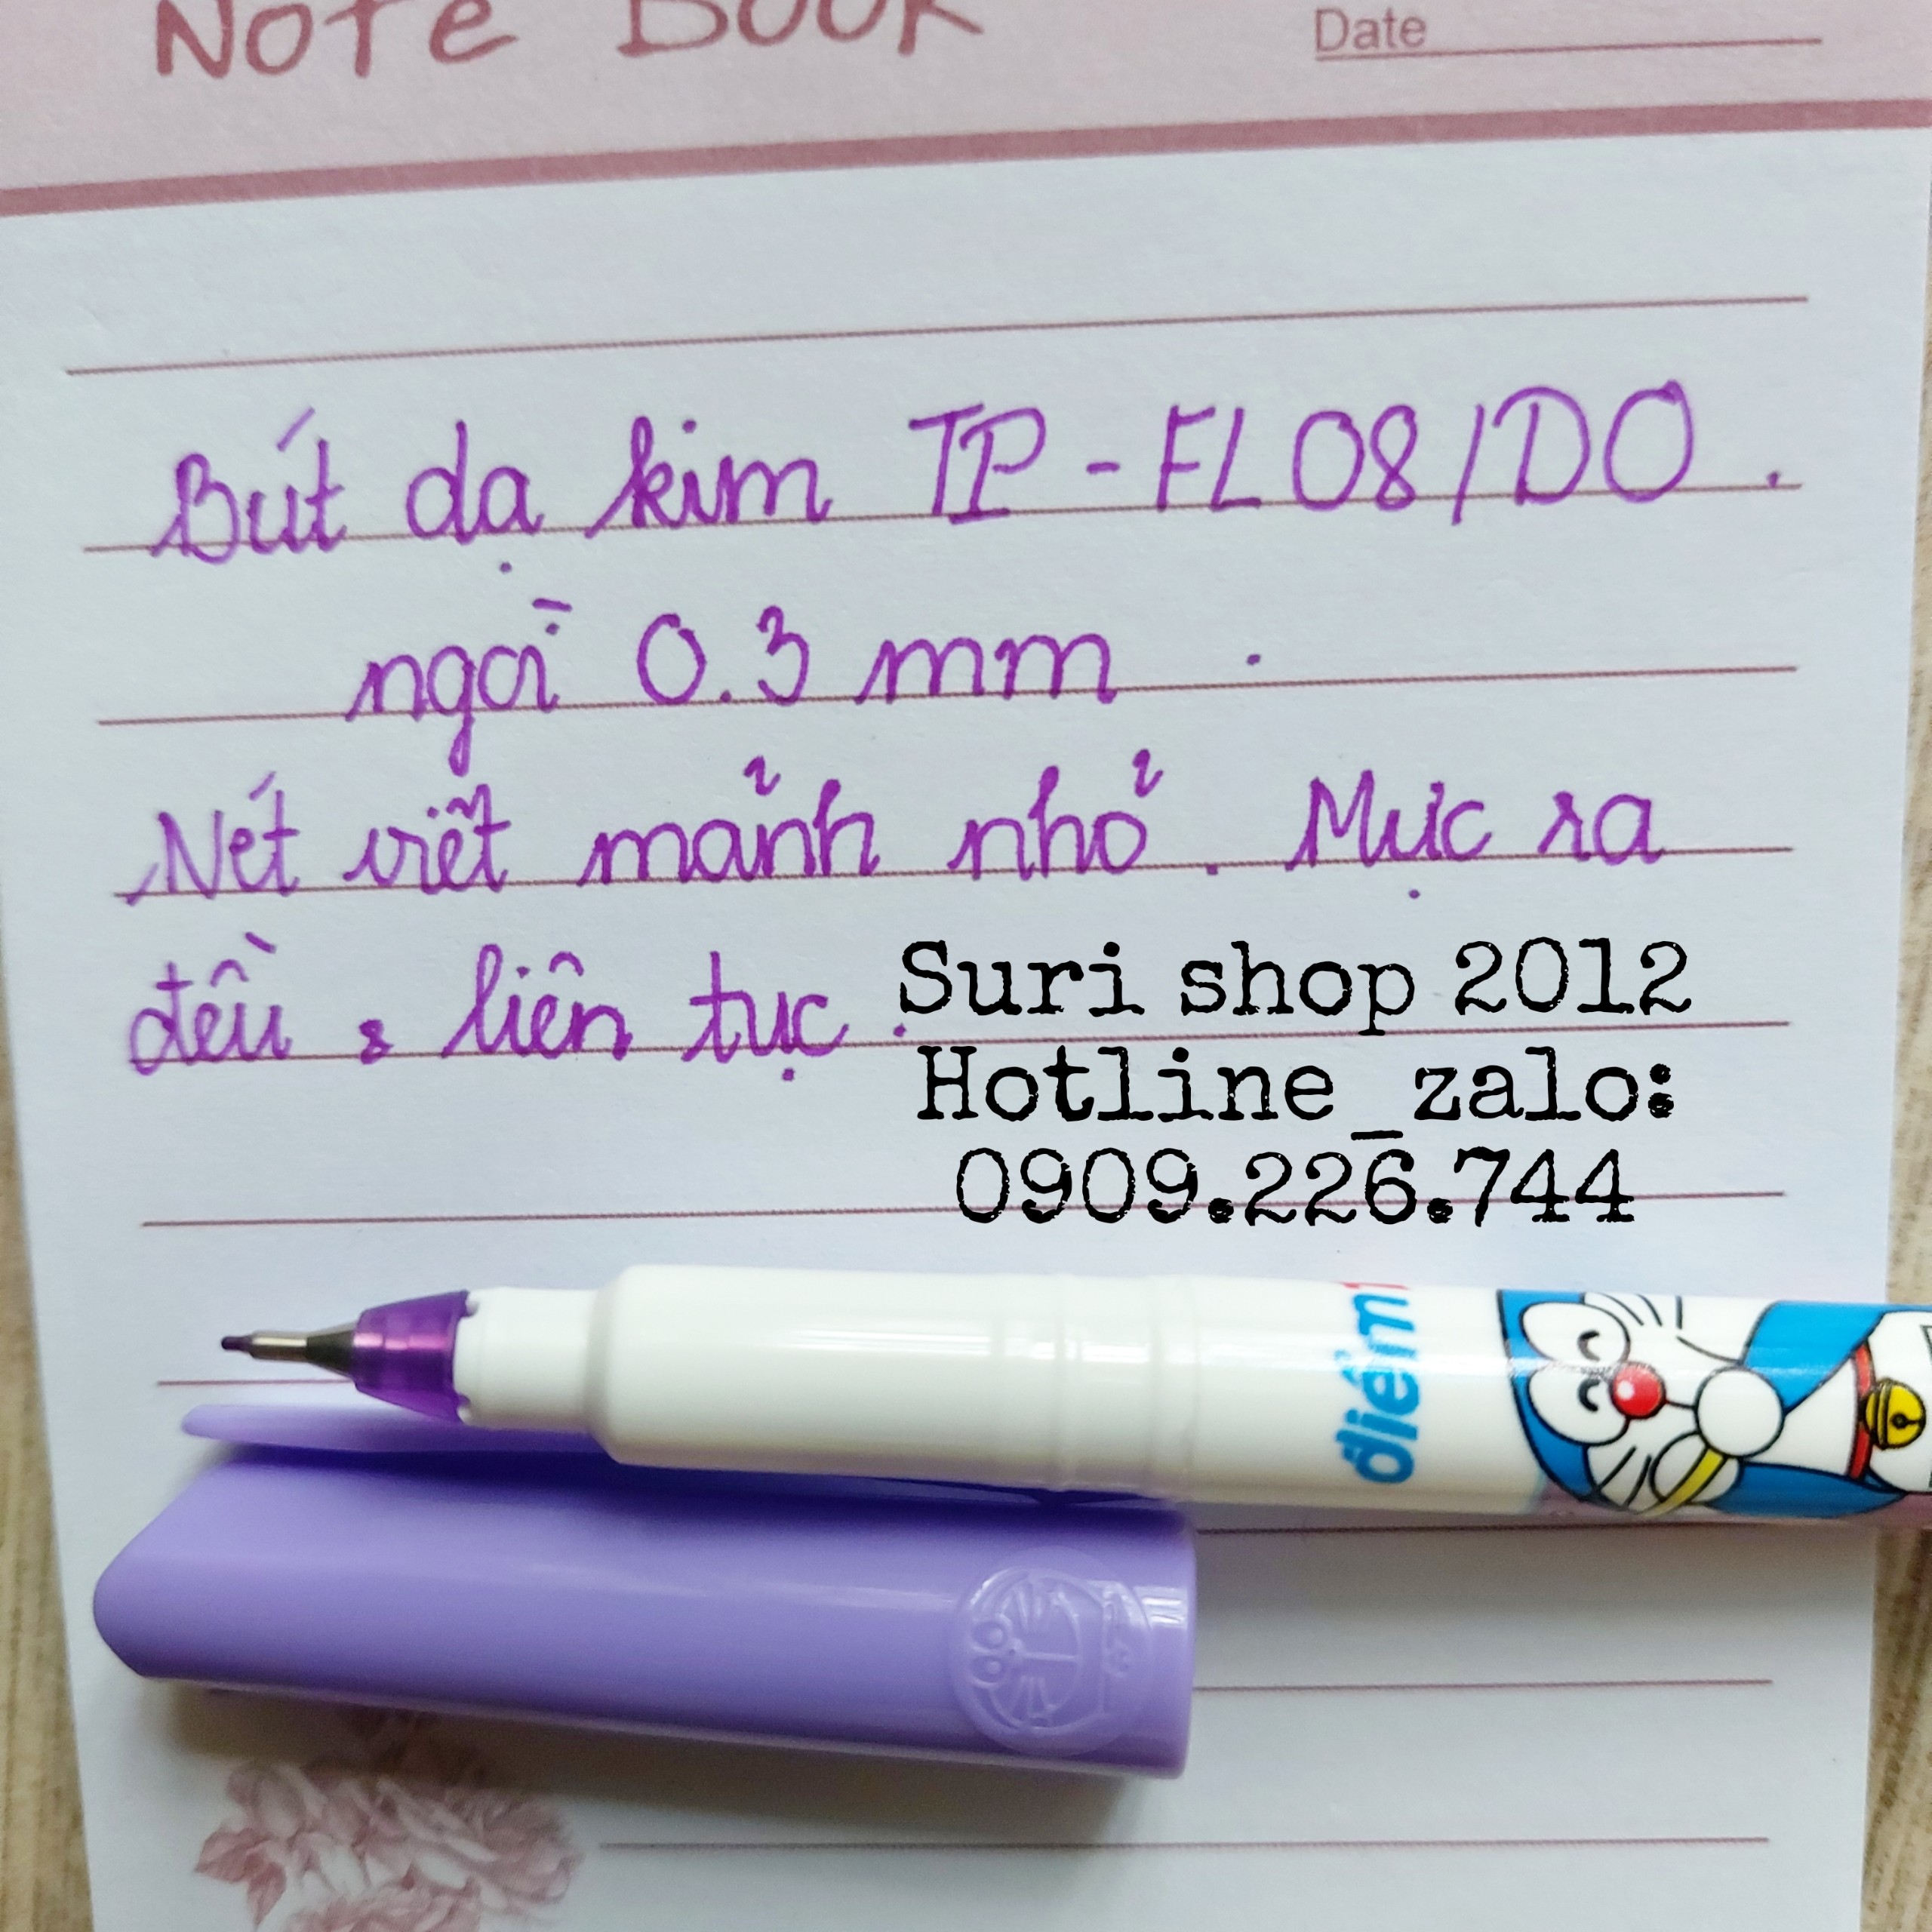 NOTE BOOK
Date
Bút dạ kim TP-FL08/DO.
ngòi 0.3 mm .
Nét viết mảnh nhỏ. Mực ra
đều, liên tục.
Suri shop 2012
Hotline_zalo:
0909.226.744
điểm